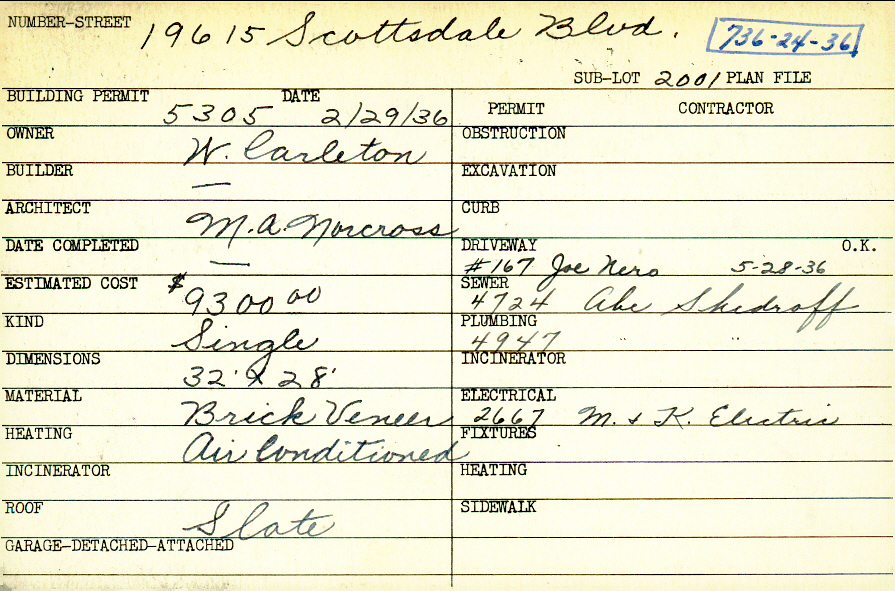 NUMBER-STREET 19615 Scottsdale Blvd. 736-24-36
SUB-LOT 2001 PLAN FILE
BUILDING PERMIT 5305 DATE 2/29/36
PERMIT CONTRACTOR
OWNER W. Carleton
OBSTRUCTION
BUILDER —
EXCAVATION
ARCHITECT M.A. Norcross
CURB
DATE COMPLETED —
DRIVEWAY O.K.
#167 Joe Nero 5-28-36
ESTIMATED COST $9300 00
SEWER
4724 Abe Shedroff
KIND Single
PLUMBING
4947
DIMENSIONS 32' X 28'
INCINERATOR
MATERIAL Brick Veneer
ELECTRICAL
2667 M. & K. Electric
HEATING Air Conditioned
FIXTURES
INCINERATOR
HEATING
ROOF Slate
SIDEWALK
GARAGE-DETACHED-ATTACHED